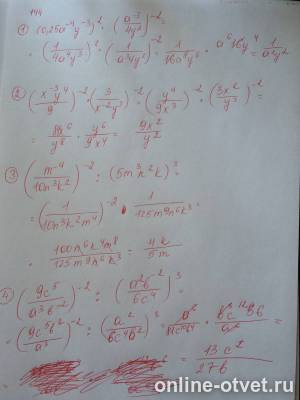 144
① (0,25a⁻⁴y⁻³)² · (a⁻³/4y²)⁻² =
= (1/4a⁴y³)² · (1/a³4y²)⁻² = 1/16a⁸y⁶ · a⁶16y⁴ = 1/a²y²
② (x⁻³y⁴/9)⁻² · (3/x⁻²y³)⁻² = (y⁴/9x³)⁻² · (3x²/y³)⁻² =
= 81x⁶/y⁸ · y⁶/9x⁴ = 9x²/y²
③ (m⁻⁴/10n³k²)⁻² : (5m³n²k)³ =
= (1/10n³k²m⁴)⁻² · 1/125m⁹n⁶k³ =
= 100n⁶k⁴m⁸/125m⁹n⁶k³ = 4k/5m
④ (9c⁵/a³b⁻²)⁻² : (a²b⁻²/6c⁴)³ =
= (9c⁵b²/a³)⁻² : (a²/6c⁴b²)³ =
= 13c²/27b
online-otvet.ru